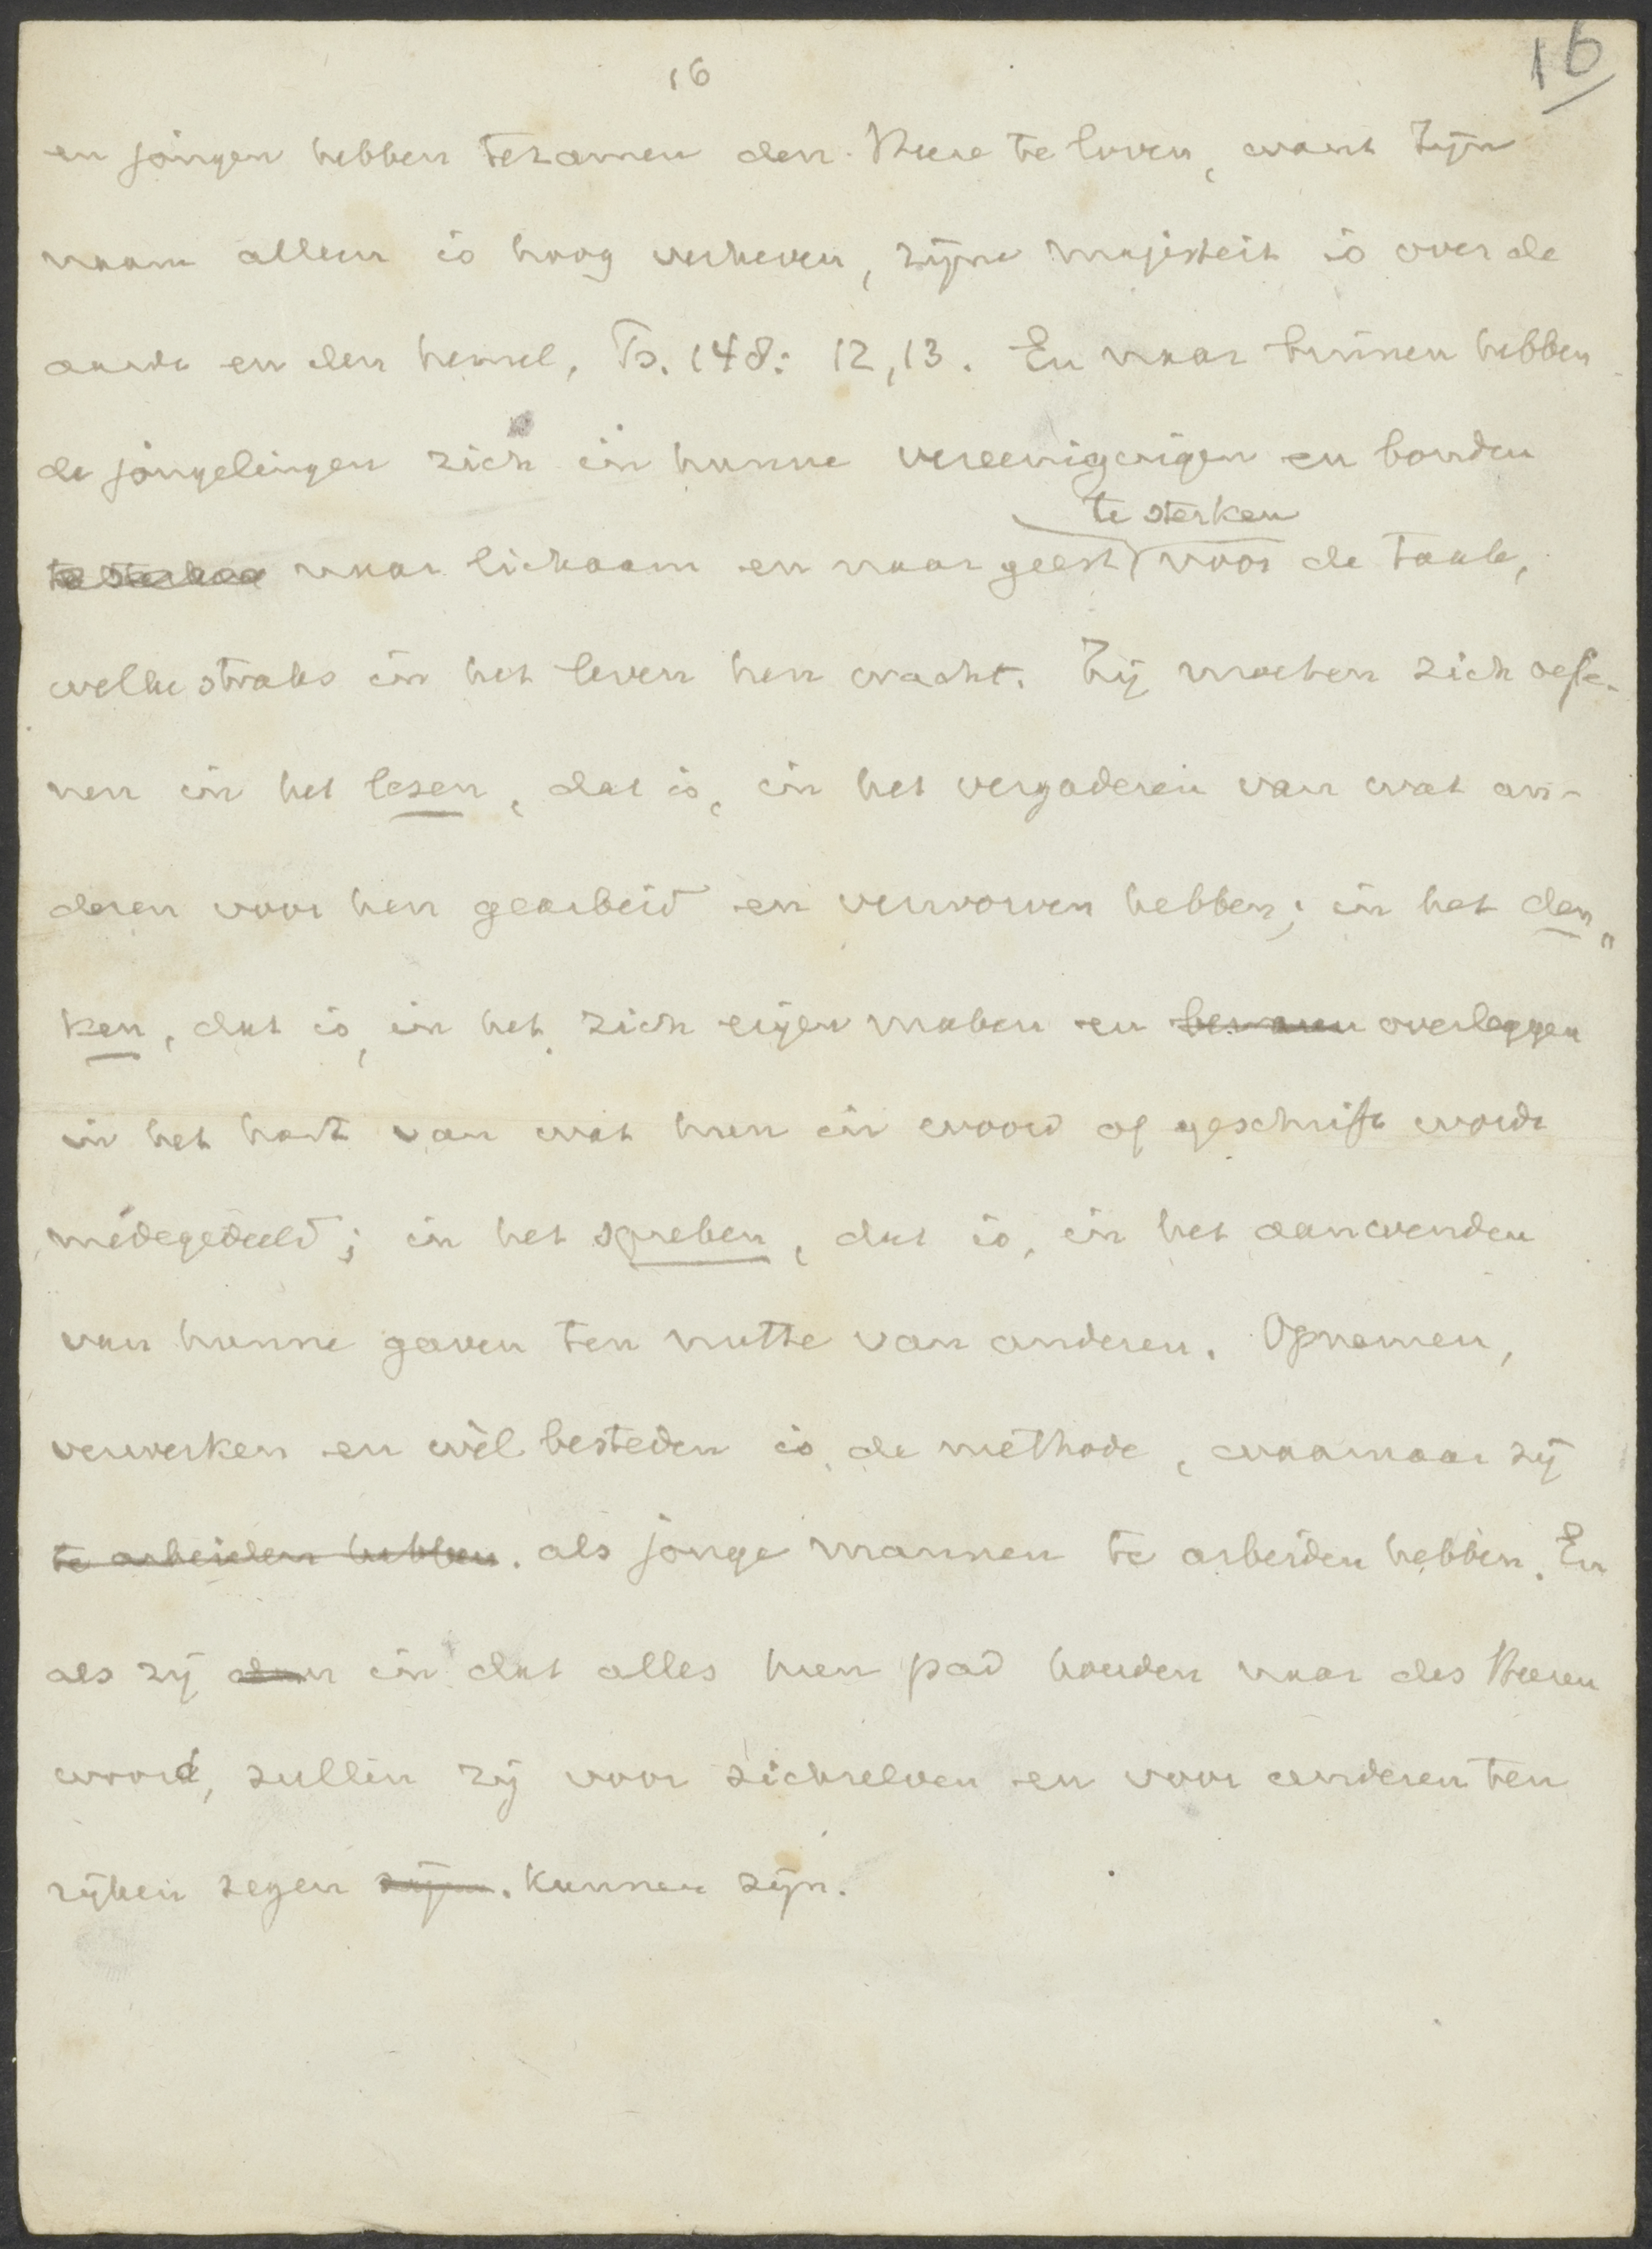 16
16
en jongen hebben tezamen den Heere te loven, want Zijn
naam alleen is hoog verheven, zijne majesteit is over de
aarde en den hemel, Ps. 148: 12, 13. En naar binnen hebben
de jongelingen zich in hunne vereenigingen en bonden
te sterken
te sterken naar lichaam en naar geest voor de taak,
welke straks in het leven hen wacht. Zij moeten zich oefe-
nen in het lezen, dat is, in het vergaderen van wat an-
deren voor hen gearbeid en verworven hebben; in het den„
ken, dat is, in het zich eigen maken en overleggen
in het hart van wat hun in woord of geschrift wordt
medegedeeld; in het spreken, dat is, in het aanwenden
van hunne gaven ten nutte van anderen. Opnemen,
verwerken en wèl besteden is de methode, waarnaar zij
te arbeiden hebben. als jonge mannen te arbeiden hebben. En
als zij dan in dat alles hun pad houden naar des Heeren
woord, zullen zij voor zichzelven en voor anderen ten
rijken zegen zijn. kunnen zijn.